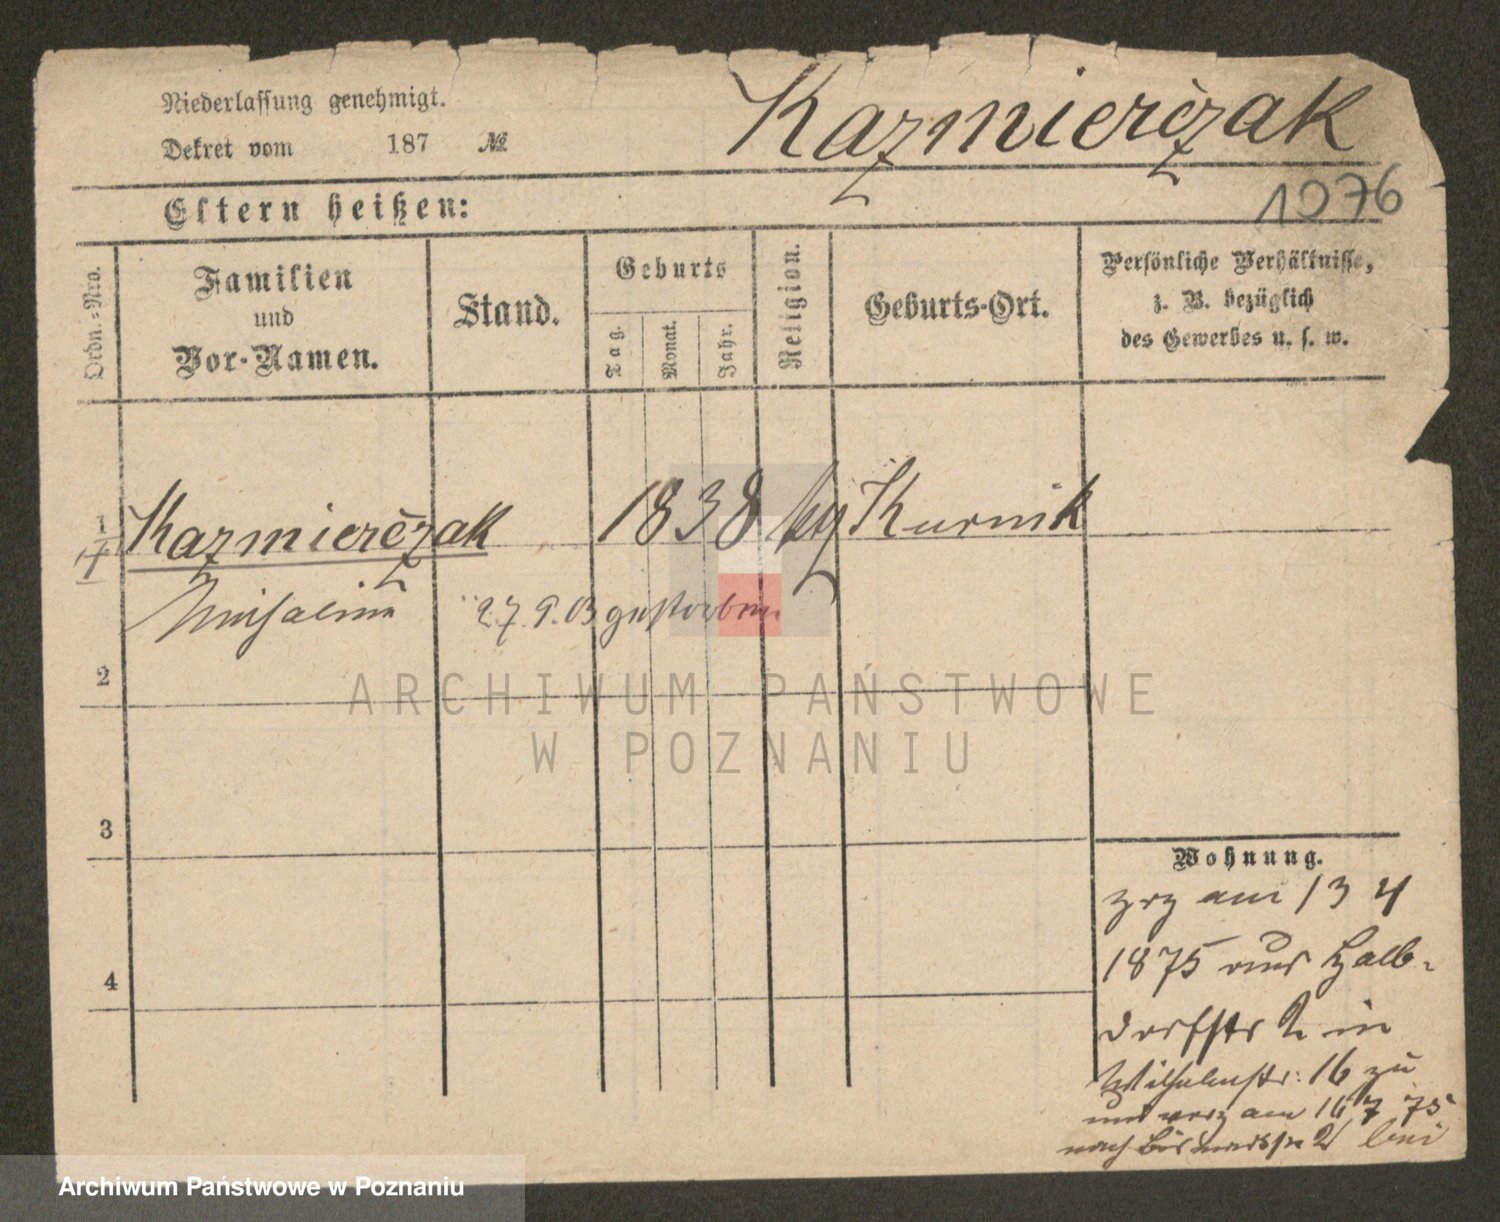 Niederlassung genehmigt.
Dekret vom 187 №
Kazmierczak
1076
Eltern heißen:
Ordn.-Nro.
Familien
und
Vor-Namen.
Stand.
Geburts
Tag.
Monat.
Jahr.
Religion.
Geburts-Ort.
Persönliche Verhältnisse,
z. B. bezüglich
des Gewerbes u. s. w.
1
Kazmierczak 1838 Kurnik
27. 9. 03 gestorben
2
ARCHIWUM PAŃSTWOWE
W POZNANIU
3
4
Wohnung.
am 13 4
1875 aus Halb-
dorfstr 2 in
Wilhelmstr: 16 zu
und verz am 16 7 75
nach Bismarckstr 2
Archiwum Państwowe w Poznaniu